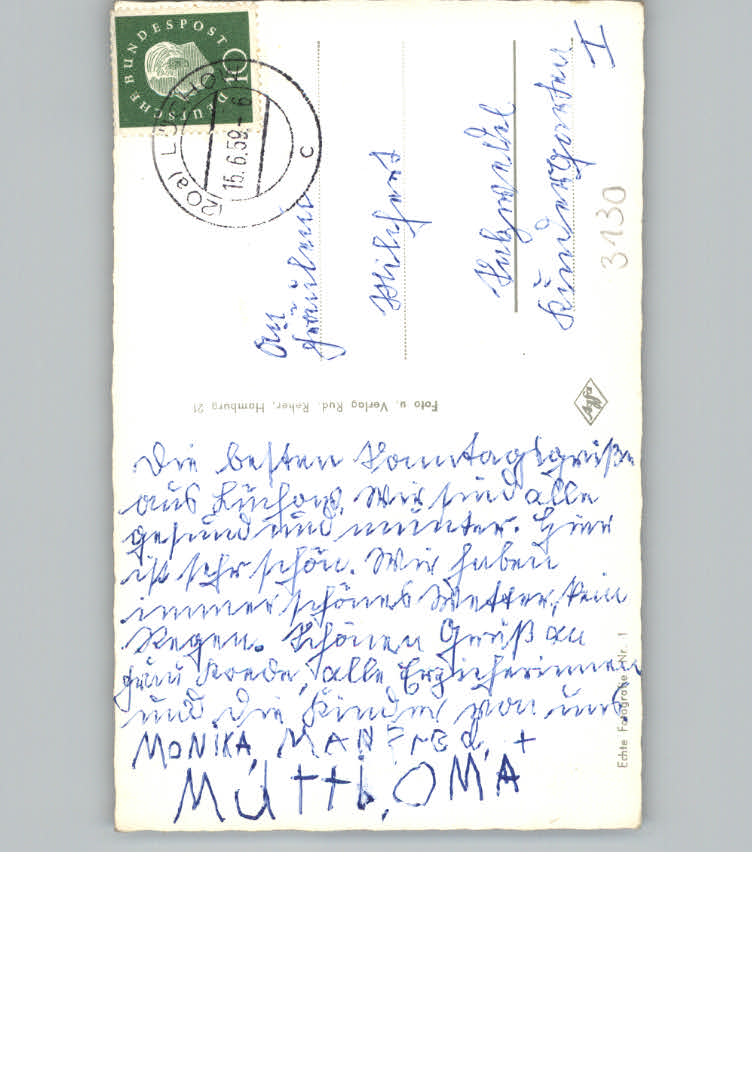 DEUTSCHE BUNDESPOST
10
(20a) LÜCHOW
15.6.59.- 6
c
An
Fräulein
Salzwedel
Kindergarten
I
3130
Foto u. Verlag Rud. Reher, Hamburg 21
Agfa
Die besten Sonntagsgrüße
aus Lüchow. Wir sind alle
gesund und munter. Hier
ist sehr schön. Wir haben
immer schönes Wetter, kein
Regen. Schönen Gruß an
Frau alle Erzieherinnen
und die Kinder von uns.
MONIKA, MANFRED +
MUTTI, OMA
Echte Fotografie Nr. 1